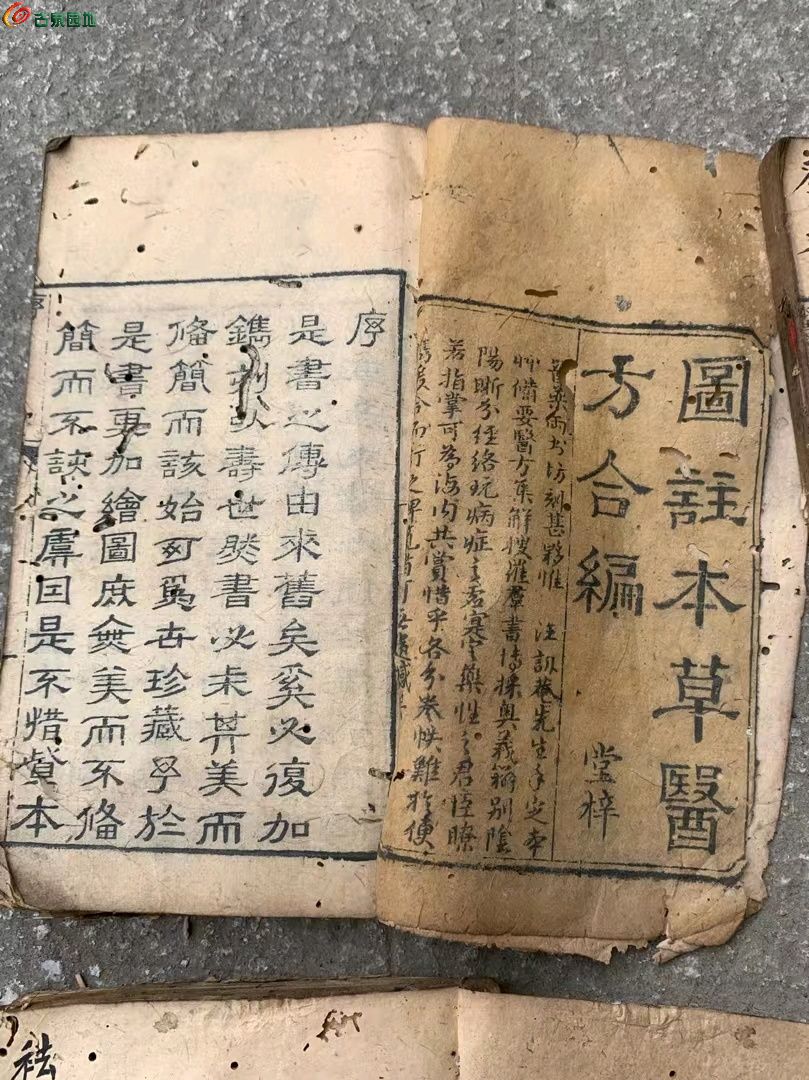 古泉园地
圖註本草醫
方合編
堂梓
醫藥兩書坊刻甚夥惟 汪訒菴先生手定本
艸備要醫方集解搜羅羣書博採奧義辯別陰
陽晰分經絡玩病症之寒藥性之君臣瞭
若指掌可為海内共賞惜乎各分卷帙難於便
合而行之
序
是書之傳由來舊矣奚必復加
鐫刻以壽世然書必求其美而
俻簡而該始可爲世珍藏予於
是書更加繪圖庶無美而不俻
簡而不訣之虞因是不惜貲本
祛